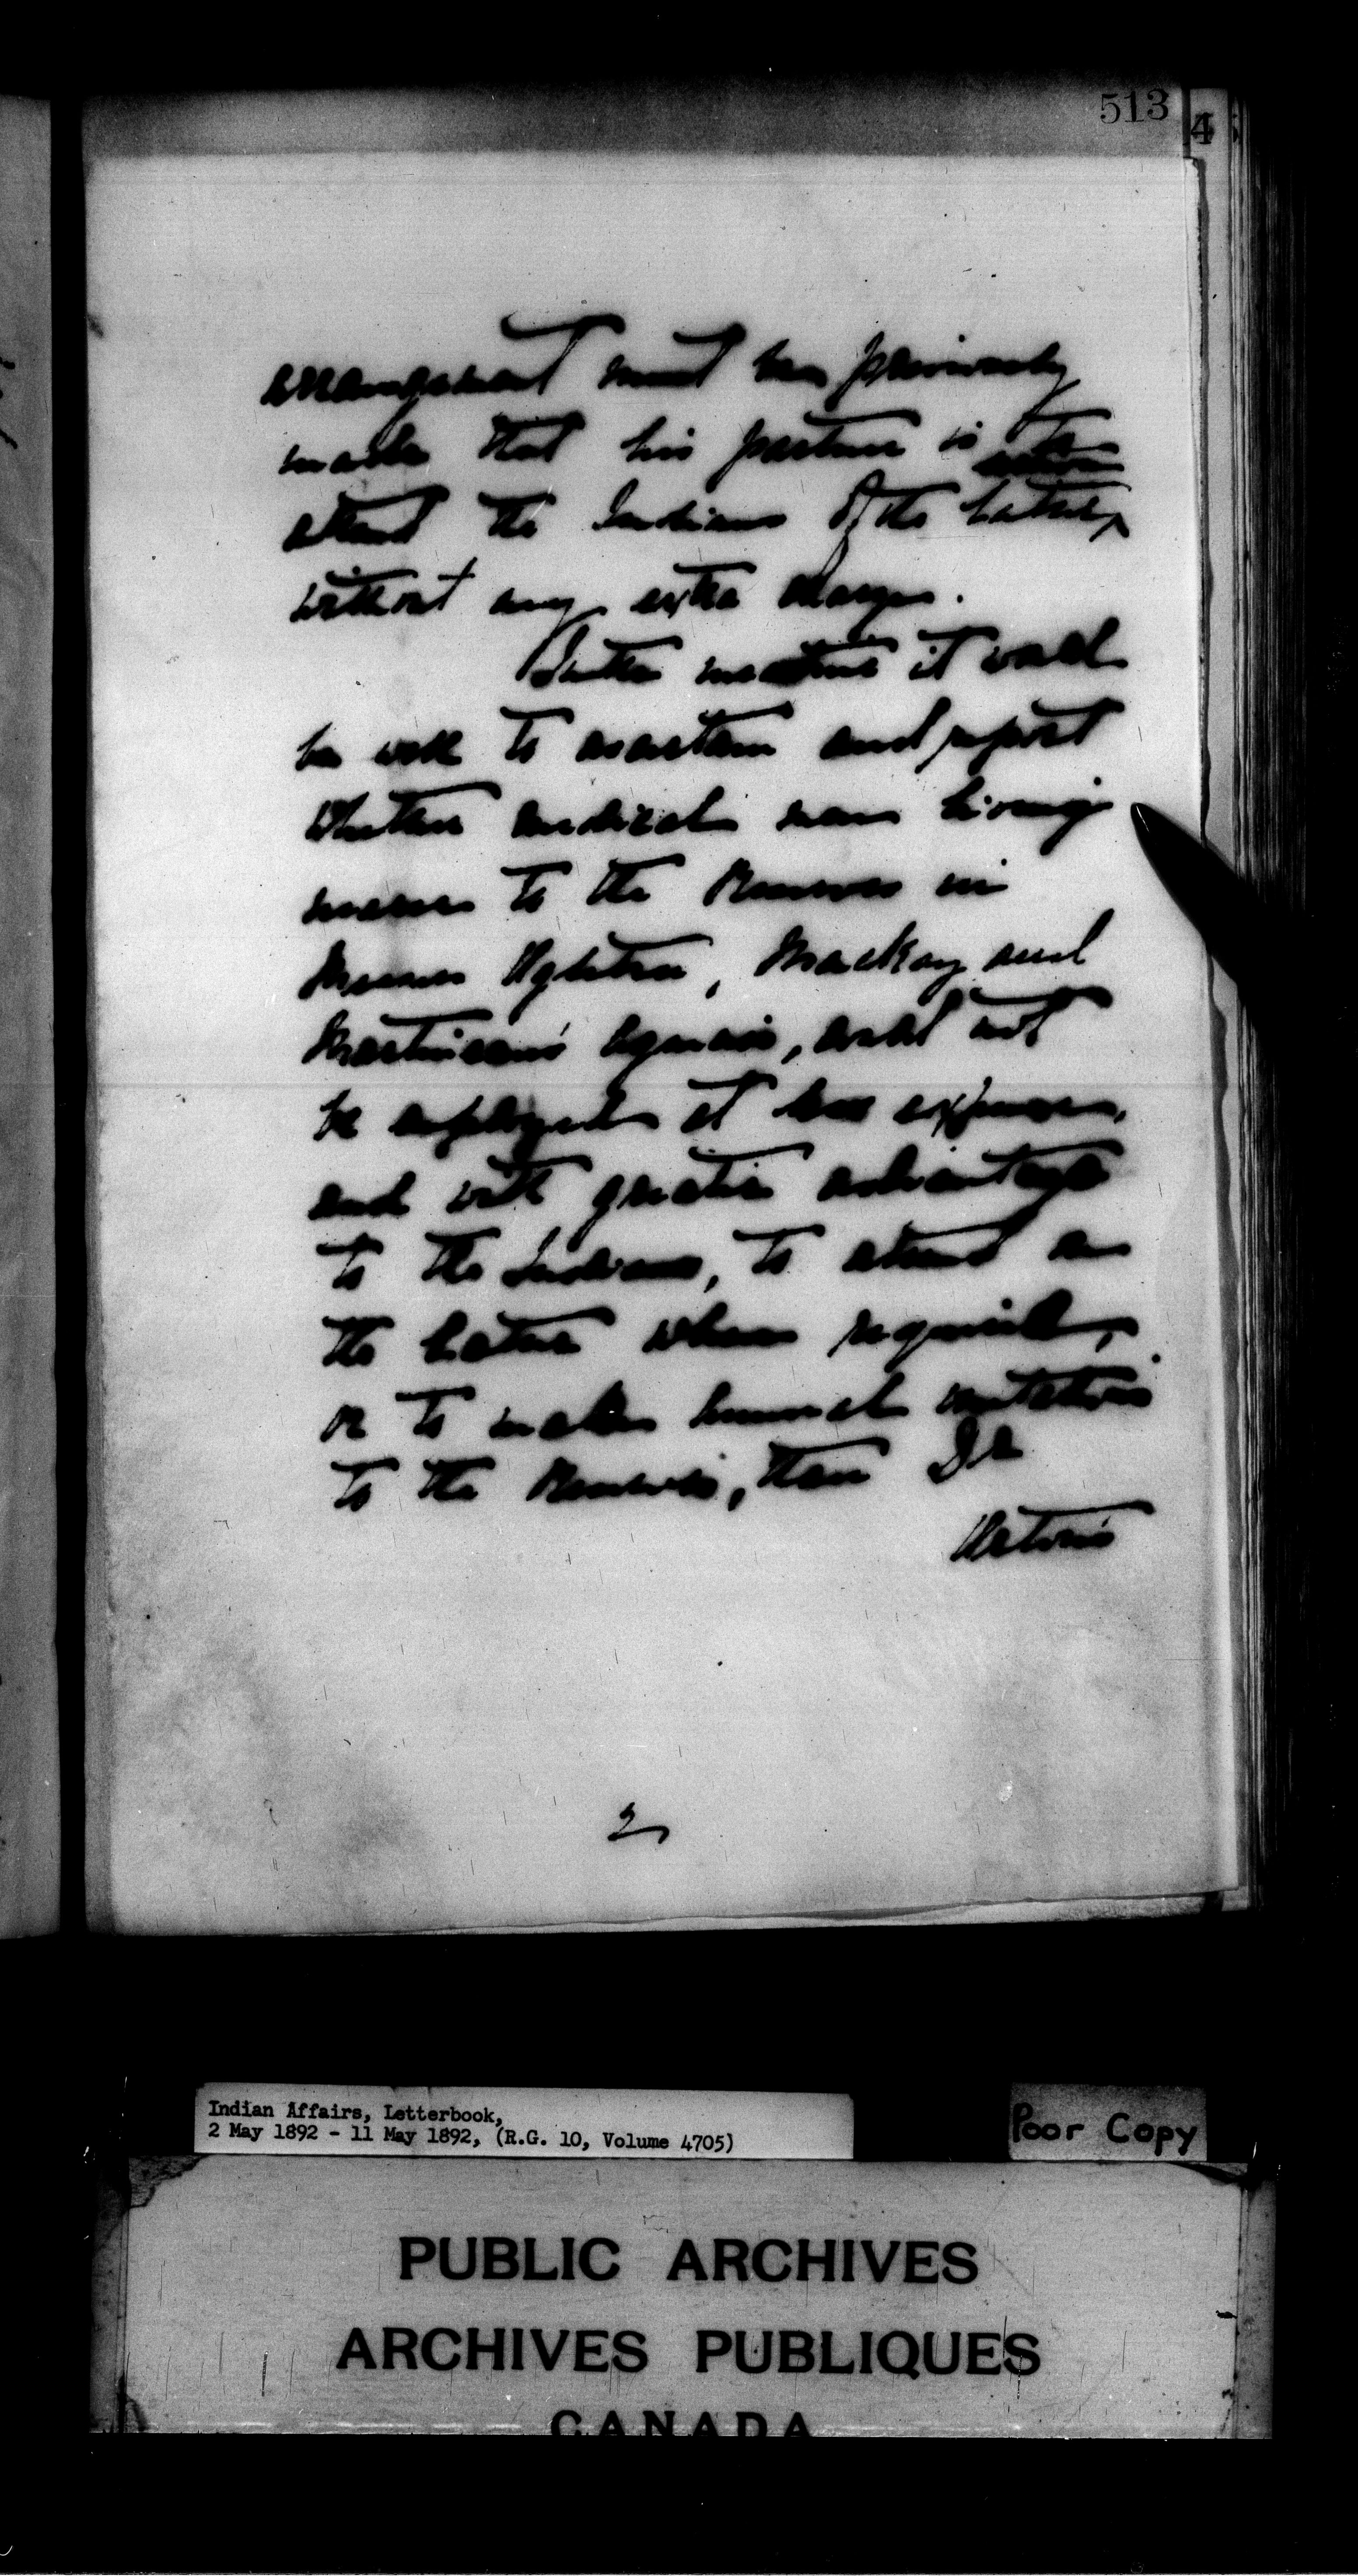 513
4
arrangement must be previously
made that his partner is to
attend the Indians of the latter,
without any extra charge.
In the meantime it would
be well to ascertain and report
whether medical men living
nearer to the Reserves in
Messrs Ogletree, Mackay and
Martineau's Agencies, could not
be employed at less expense,
and with greater advantage
to the Indians, to attend on
the latter when required,
or to make biennial visitations
to the Reserves, than Dr
2
Indian Affairs, Letterbook,
2 May 1892 - 11 May 1892, (R.G. 10, Volume 4705)
Poor Copy
PUBLIC ARCHIVES
ARCHIVES PUBLIQUES
CANADA